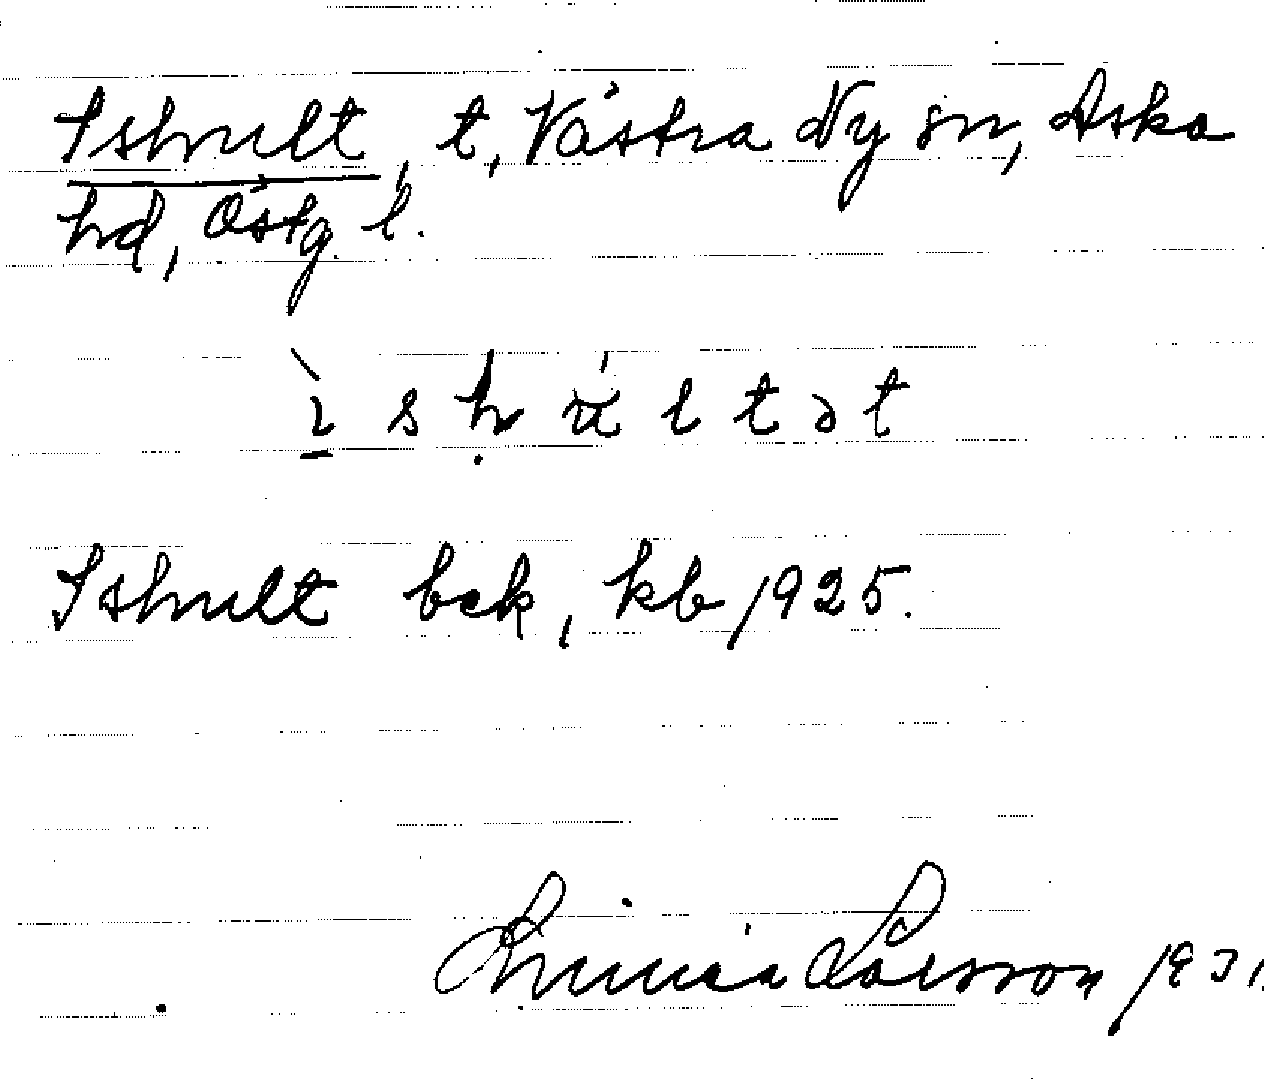 Ishult, t, Västra Ny sn, Aska
hd, Östg. l.
ì s h ú l t ə t
Ishult bck, kb 1925.
Linnéa Larsson 1931.